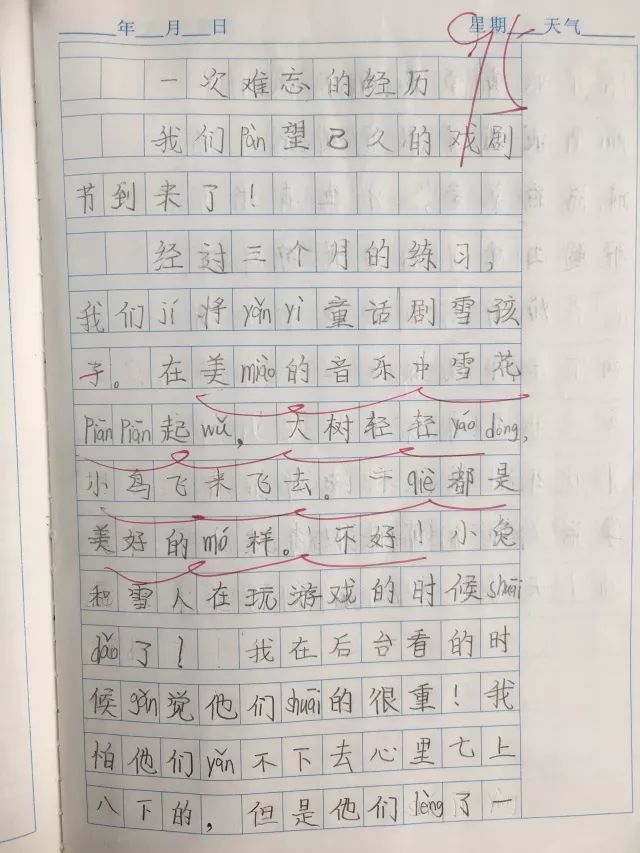 年 月 日 星期 天气
95
一次难忘的经历
我们pàn望已久的戏剧
节到来了！
经过三个月的练习，
我们jí将yǎn yì童话剧雪孩
子。在美miào的音乐中雪花
Piān Piān起wǔ，大树轻轻yáo dòng，
小鸟飞来飞去。一qiè都是
美好的mó样。不好！小兔
和雪人在玩游戏的时候shuāi
dǎo了！我在后台看的时
候gǎn觉他们shuāi的很重！我
怕他们yǎn不下去心里七上
八下的，但是他们lèng了一